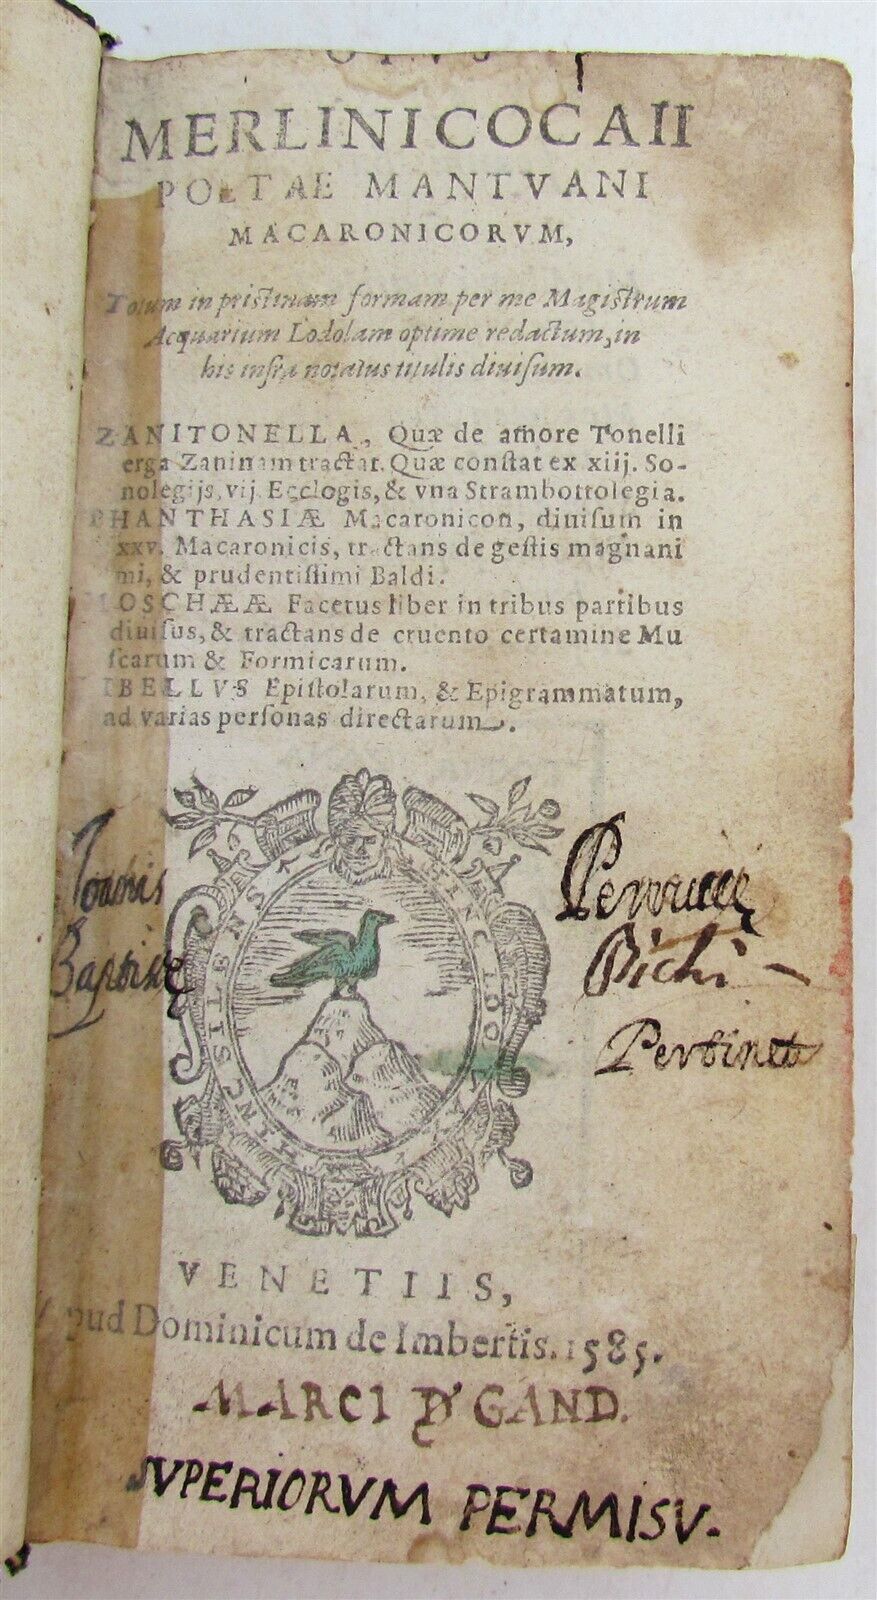 OPVS
MERLINI COCAII
POETAE MANTVANI
MACARONICORVM,
Totum in pristinam formam per me Magistrum
Acquarium Lodolam optime redactum, in
his infra notatus titulis diuisum.
ZANITONELLA, Quæ de amore Tonelli
erga Zaninam tractat. Quæ constat ex xiij. So-
nolegijs, vij Ecclogis, & vna Strambottolegia.
PHANTHASIÆ Macaronicon, diuisum in
xxv. Macaronicis, tractans de gestis magnani
mi, & prudentissimi Baldi.
MOSCHÆÆ Facetus liber in tribus partibus
diuisus, & tractans de cruento certamine Mu
scarum & Formicarum.
LIBELLVS Epistolarum, & Epigrammatum,
ad varias personas directarum.
Ioannis
Baptistæ
Perrucce
Bichi -
Pertinet
VENETIIS,
Apud Dominicum de Imbertis. 1585.
MARCI D GAND.
SVPERIORVM PERMISV.